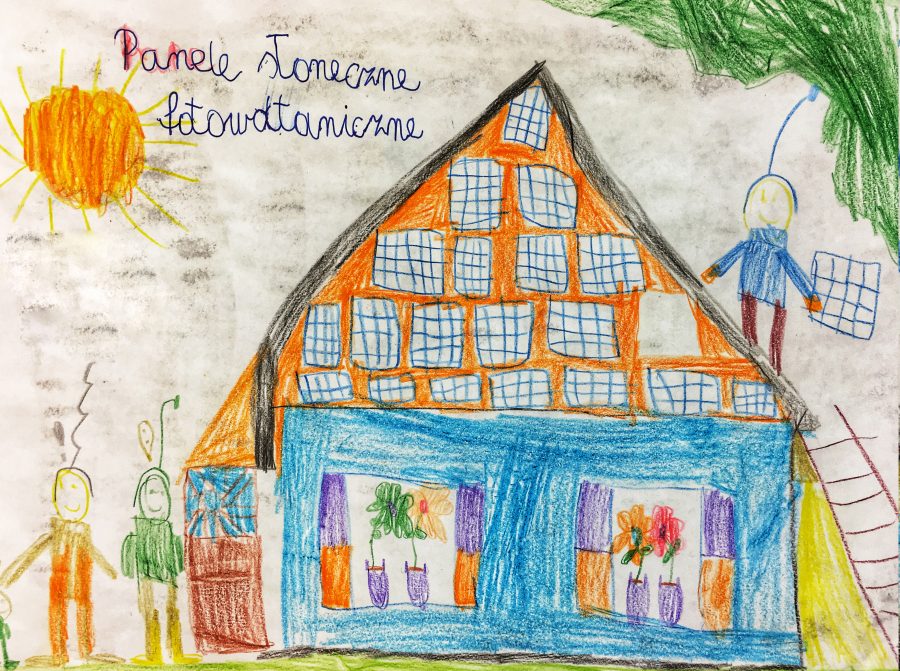 Panele słoneczne
fotowoltaniczne